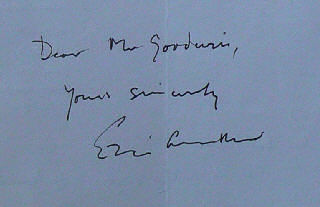 Dear Mr Goodwin,
Yours sincerely
Eric